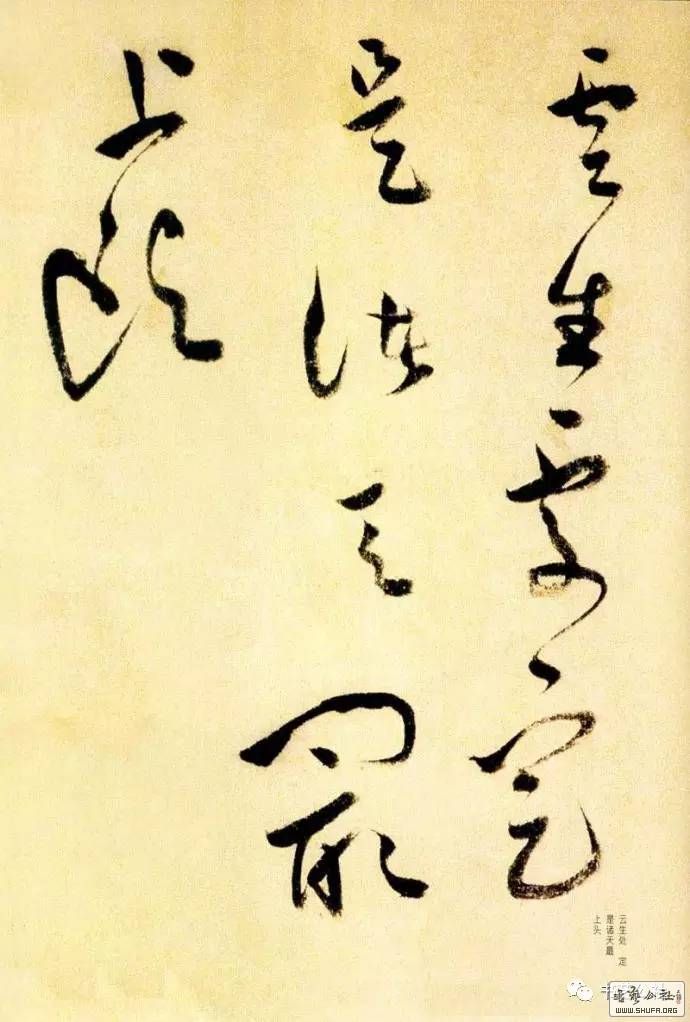 雲生處定
是諸天最
上頭
云生处 定
是诸天最
上头
书艺公社
WWW.SHUFA.ORG